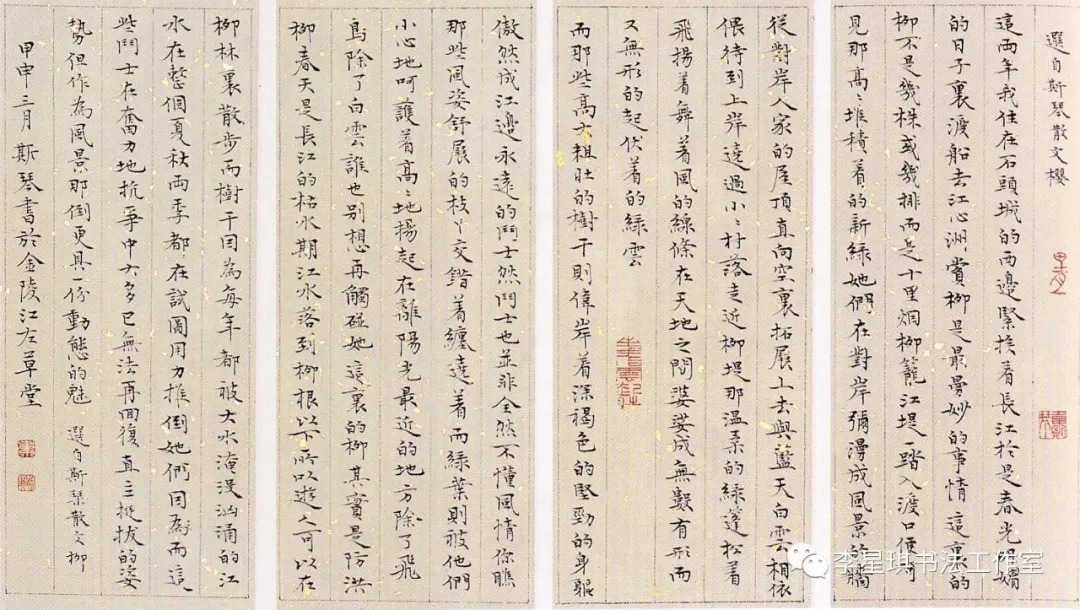 選自斯琴散文櫻
這兩年我住在石頭城的西邊緊挨着長江於是春光明媚
的日子裏渡船去江心洲賞柳是最曼妙的事情這裏的
柳不是幾株或幾排而是十里烟柳籠江堤一踏入渡口便可
見那高〻堆積着的新緑她們在對岸彌漫成風景
從對岸人家的屋頂直向空裏拓展上去與藍天白雲相依
偎待到上岸遶過小〻村落走近柳堤那温柔的緑蓬松着
飛揚着舞着風的線條在天地之間婆娑成無數有形而
又無形的起伏着的緑雲
而那些高大粗壯的樹干則偉岸着深褐色的堅勁的身軀
傲然成江邊永遠的鬥士然鬥士也並非全然不懂風情你瞧
那些風姿舒展的枝丫交錯着纏遶着而緑葉則被他們
小心地呵護着高〻地揚起在離陽光最近的地方除了飛
鳥除了白雲誰也别想再觸碰她這裏的柳其實是防洪
柳春天是長江的枯水期江水落到柳根以下所以遊人可以在
柳林裏散步而樹干因為每年都被大水淹没汹涌的江
水在整個夏秋兩季都在試圖用力推倒她們因為而這
些鬥士在奮力地抗爭中大多已無法再回復直立挺拔的姿
勢但作為風景那倒更具一份動態的魅 選自斯琴散文柳
甲申三月斯琴書於金陵江左草堂
李星琪书法工作室